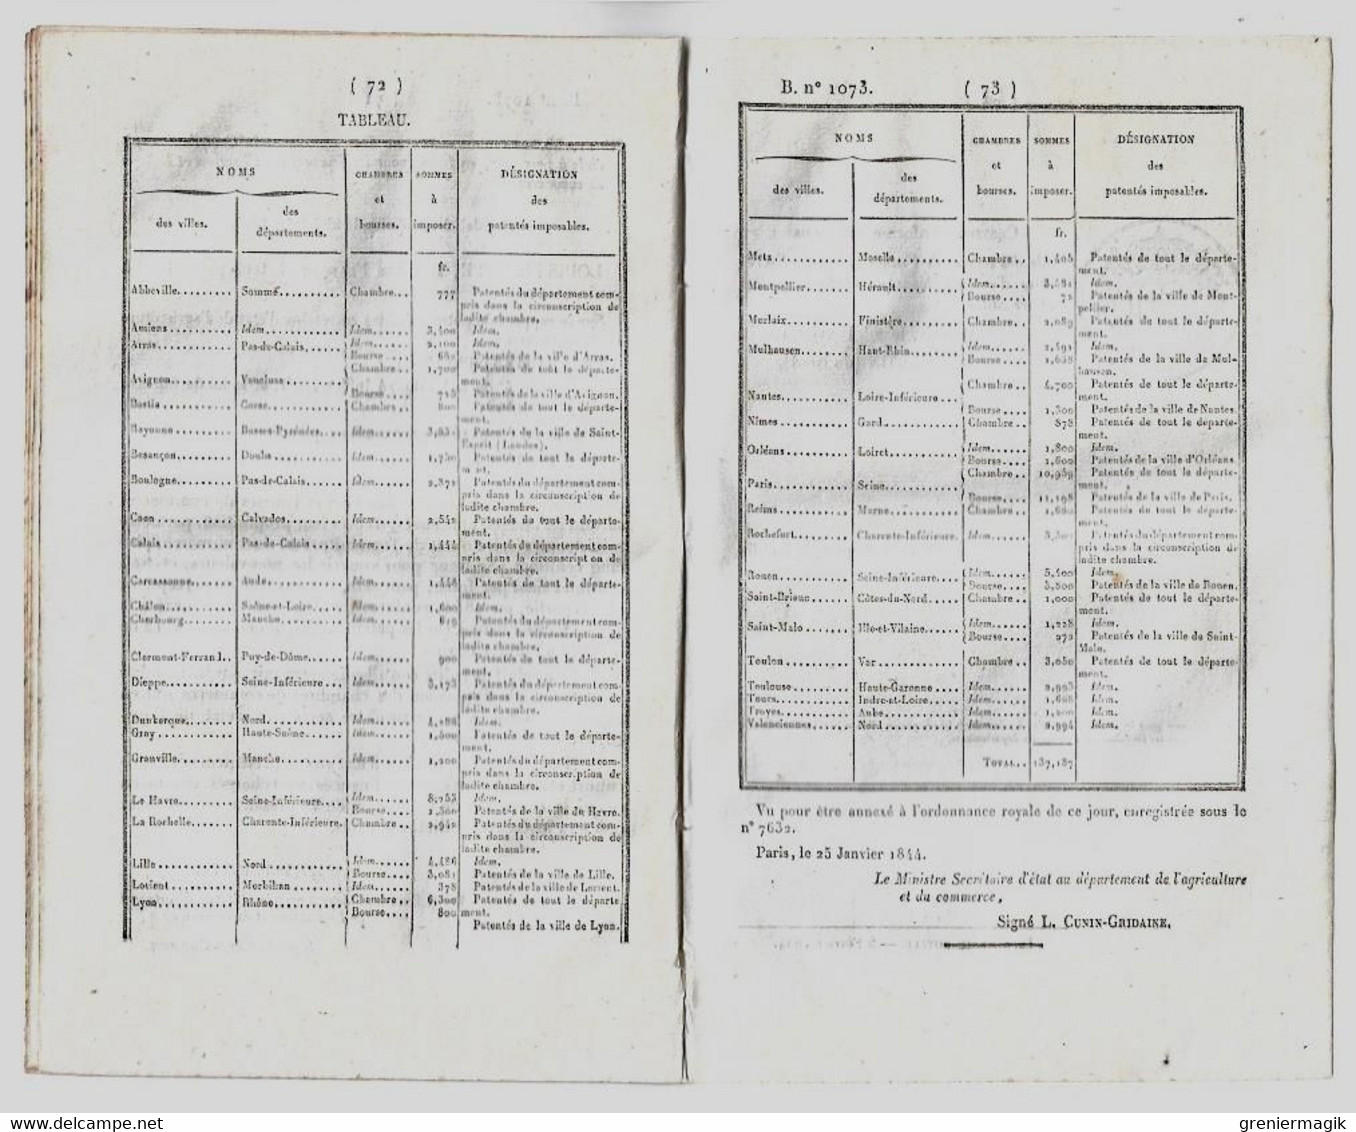 ( 72 )
TABLEAU.
NOMS
des villes.
des
départements.
CHAMBRES
et
bourses.
SOMMES
à
imposer.
DÉSIGNATION
des
patentés imposables.
fr.
Abbeville........ Somme.......... Chambre... 777 Patentés du département com-
pris dans la circonscription de
ladite chambre.
Amiens ......... Idem........... Idem...... 3,400 Idem.
Arras........... Pas-de-Calais..... Idem...... 2,100 Idem.
Bourse.... Patentés de la ville d'Arras.
Avignon......... Vaucluse........ Chambre.. 1,700 Patentés de tout le départe-
ment.
Bourse.... Patentés de la ville d'Avignon.
Bastia .......... Corse........... Chambre.. Patentés de tout le départe-
ment.
Bayonne ........ Basses-Pyrénées... Idem...... Patentés de la ville de Saint-
Esprit (Landes).
Besançon........ Doubs ......... Idem...... Patentés de tout le départe-
ment.
Boulogne........ Pas-de-Calais..... Idem...... Patentés du département com-
pris dans la circonscription de
ladite chambre.
Caen ........... Calvados......... Idem...... 2,542 Patentés de tout le départe-
ment.
Calais........... Pas-de-Calais .... Idem...... 1,444 Patentés du département com-
pris dans la circonscription de
ladite chambre.
Carcassonne...... Aude........... Idem...... 1,448 Patentés de tout le départe-
ment.
Châlon.......... Saône-et-Loire.... Idem...... 1,600 Idem.
Cherbourg....... Manche......... Idem...... 619 Patentés du département com-
pris dans la circonscription de
ladite chambre.
Clermont-Ferrand.. Puy-de-Dôme..... Idem...... 900 Patentés de tout le départe-
ment.
Dieppe.......... Seine-Inférieure... Idem...... 3,173 Patentés du département com-
pris dans la circonscription de
ladite chambre.
Dunkerque....... Nord........... Idem...... Idem.
Gray ........... Haute-Saône..... Idem...... Patentés de tout le départe-
ment.
Granville........ Manche......... Idem...... 1,200 Patentés du département com-
pris dans la circonscription de
ladite chambre.
Le Havre........ Seine-Inférieure... Idem...... 8,253 Idem.
Bourse.... Patentés de la ville du Havre.
La Rochelle...... Charente-Inférieure. Chambre.. Patentés du département com-
pris dans la circonscription de
ladite chambre.
Lille ........... Nord........... Idem...... 4,486 Idem.
Bourse.... 3,081 Patentés de la ville de Lille.
Lorient ......... Morbihan ....... Idem...... 378 Patentés de la ville de Lorient.
Lyon........... Rhône.......... Chambre.. 6,300 Patentés de tout le départe
ment.
Bourse.... 800 Patentés de la ville de Lyon.
B. n° 1073. ( 73 )
NOMS
des villes.
des
départements.
CHAMBRES
et
bourses.
SOMMES
à
imposer.
DÉSIGNATION
des
patentés imposables.
fr.
Metz........... Moselle......... Chambre.. 1,405 Patentés de tout le départe-
ment.
Montpellier...... Hérault......... Idem...... Idem.
Bourse.... 72 Patentés de la ville de Mont-
pellier.
Morlaix ......... Finistère........ Chambre.. 2,089 Patentés de tout le départe-
ment.
Mulhausen....... Haut-Rhin....... Idem...... 2,491 Idem.
Bourse.... Patentés de la ville de Mul-
hausen.
Nantes.......... Loire-Inférieure... Chambre.. 4,700 Patentés de tout le départe-
ment.
Bourse.... 1,300 Patentés de la ville de Nantes.
Nîmes .......... Gard........... Chambre.. 878 Patentés de tout le départe-
ment.
Orléans......... Loiret.......... Idem...... 1,800 Idem.
Bourse.... 1,600 Patentés de la ville d'Orléans.
Paris........... Seine........... Chambre.. 10,989 Patentés de tout le départe-
ment.
Bourse.... 11,198 Patentés de la ville de Paris.
Reims .......... Marne.......... Chambre.. Patentés de tout le départe-
ment.
Rochefort........ Charente-Inférieure. Idem...... Patentés du département com-
pris dans la circonscription de
ladite chambre.
Rouen .......... Seine-Inférieure... Idem...... 5,400 Idem.
Bourse.... 3,800 Patentés de la ville de Rouen.
Saint-Brieuc...... Côtes-du-Nord.... Chambre.. 1,000 Patentés de tout le départe-
ment.
Saint-Malo ....... Ille-et-Vilaine..... Idem...... 1,228 Idem.
Bourse.... 272 Patentés de la ville de Saint-
Malo.
Toulon ......... Var............ Chambre.. 3,050 Patentés de tout le départe-
ment.
Toulouse........ Haute-Garonne .... Idem...... 2,993 Idem.
Tours........... Indre-et-Loire..... Idem...... Idem.
Troyes.......... Aube........... Idem...... Idem.
Valenciennes...... Nord........... Idem...... 2,994 Idem.
TOTAL... 137,187
Vu pour être annexé à l'ordonnance royale de ce jour, enregistrée sous le
n° 7632.
Paris, le 25 Janvier 1844.
Le Ministre Secrétaire d'état au département de l'agriculture
et du commerce,
Signé L. CUNIN-GRIDAINE.
www.delcampe.net
greniermagik